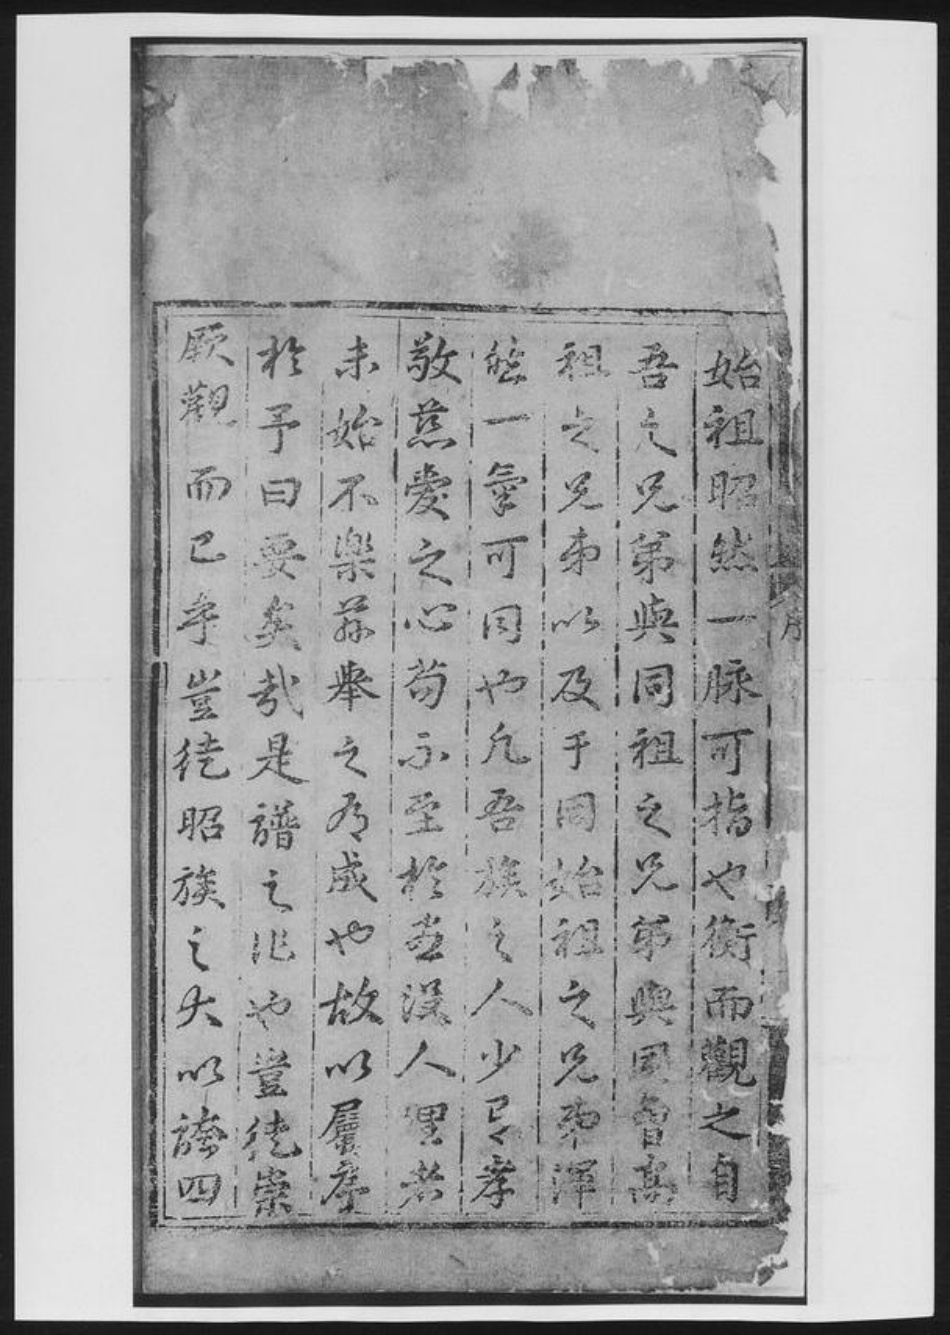 始祖昭然一脉可指也衡而觀之自
吾之兄第與同祖之兄第與同曾高
祖之兄弟以及于同始祖之兄弟渾
然一氣可同也凡吾族之人少有孝
敬慈愛之心苟不至於盡沒人理者
未始不樂茲舉之有成也故以屬序
於予曰要矣哉是譜之作也豈徒崇
厥觀而已乎豈徒昭族之大以誇四
序